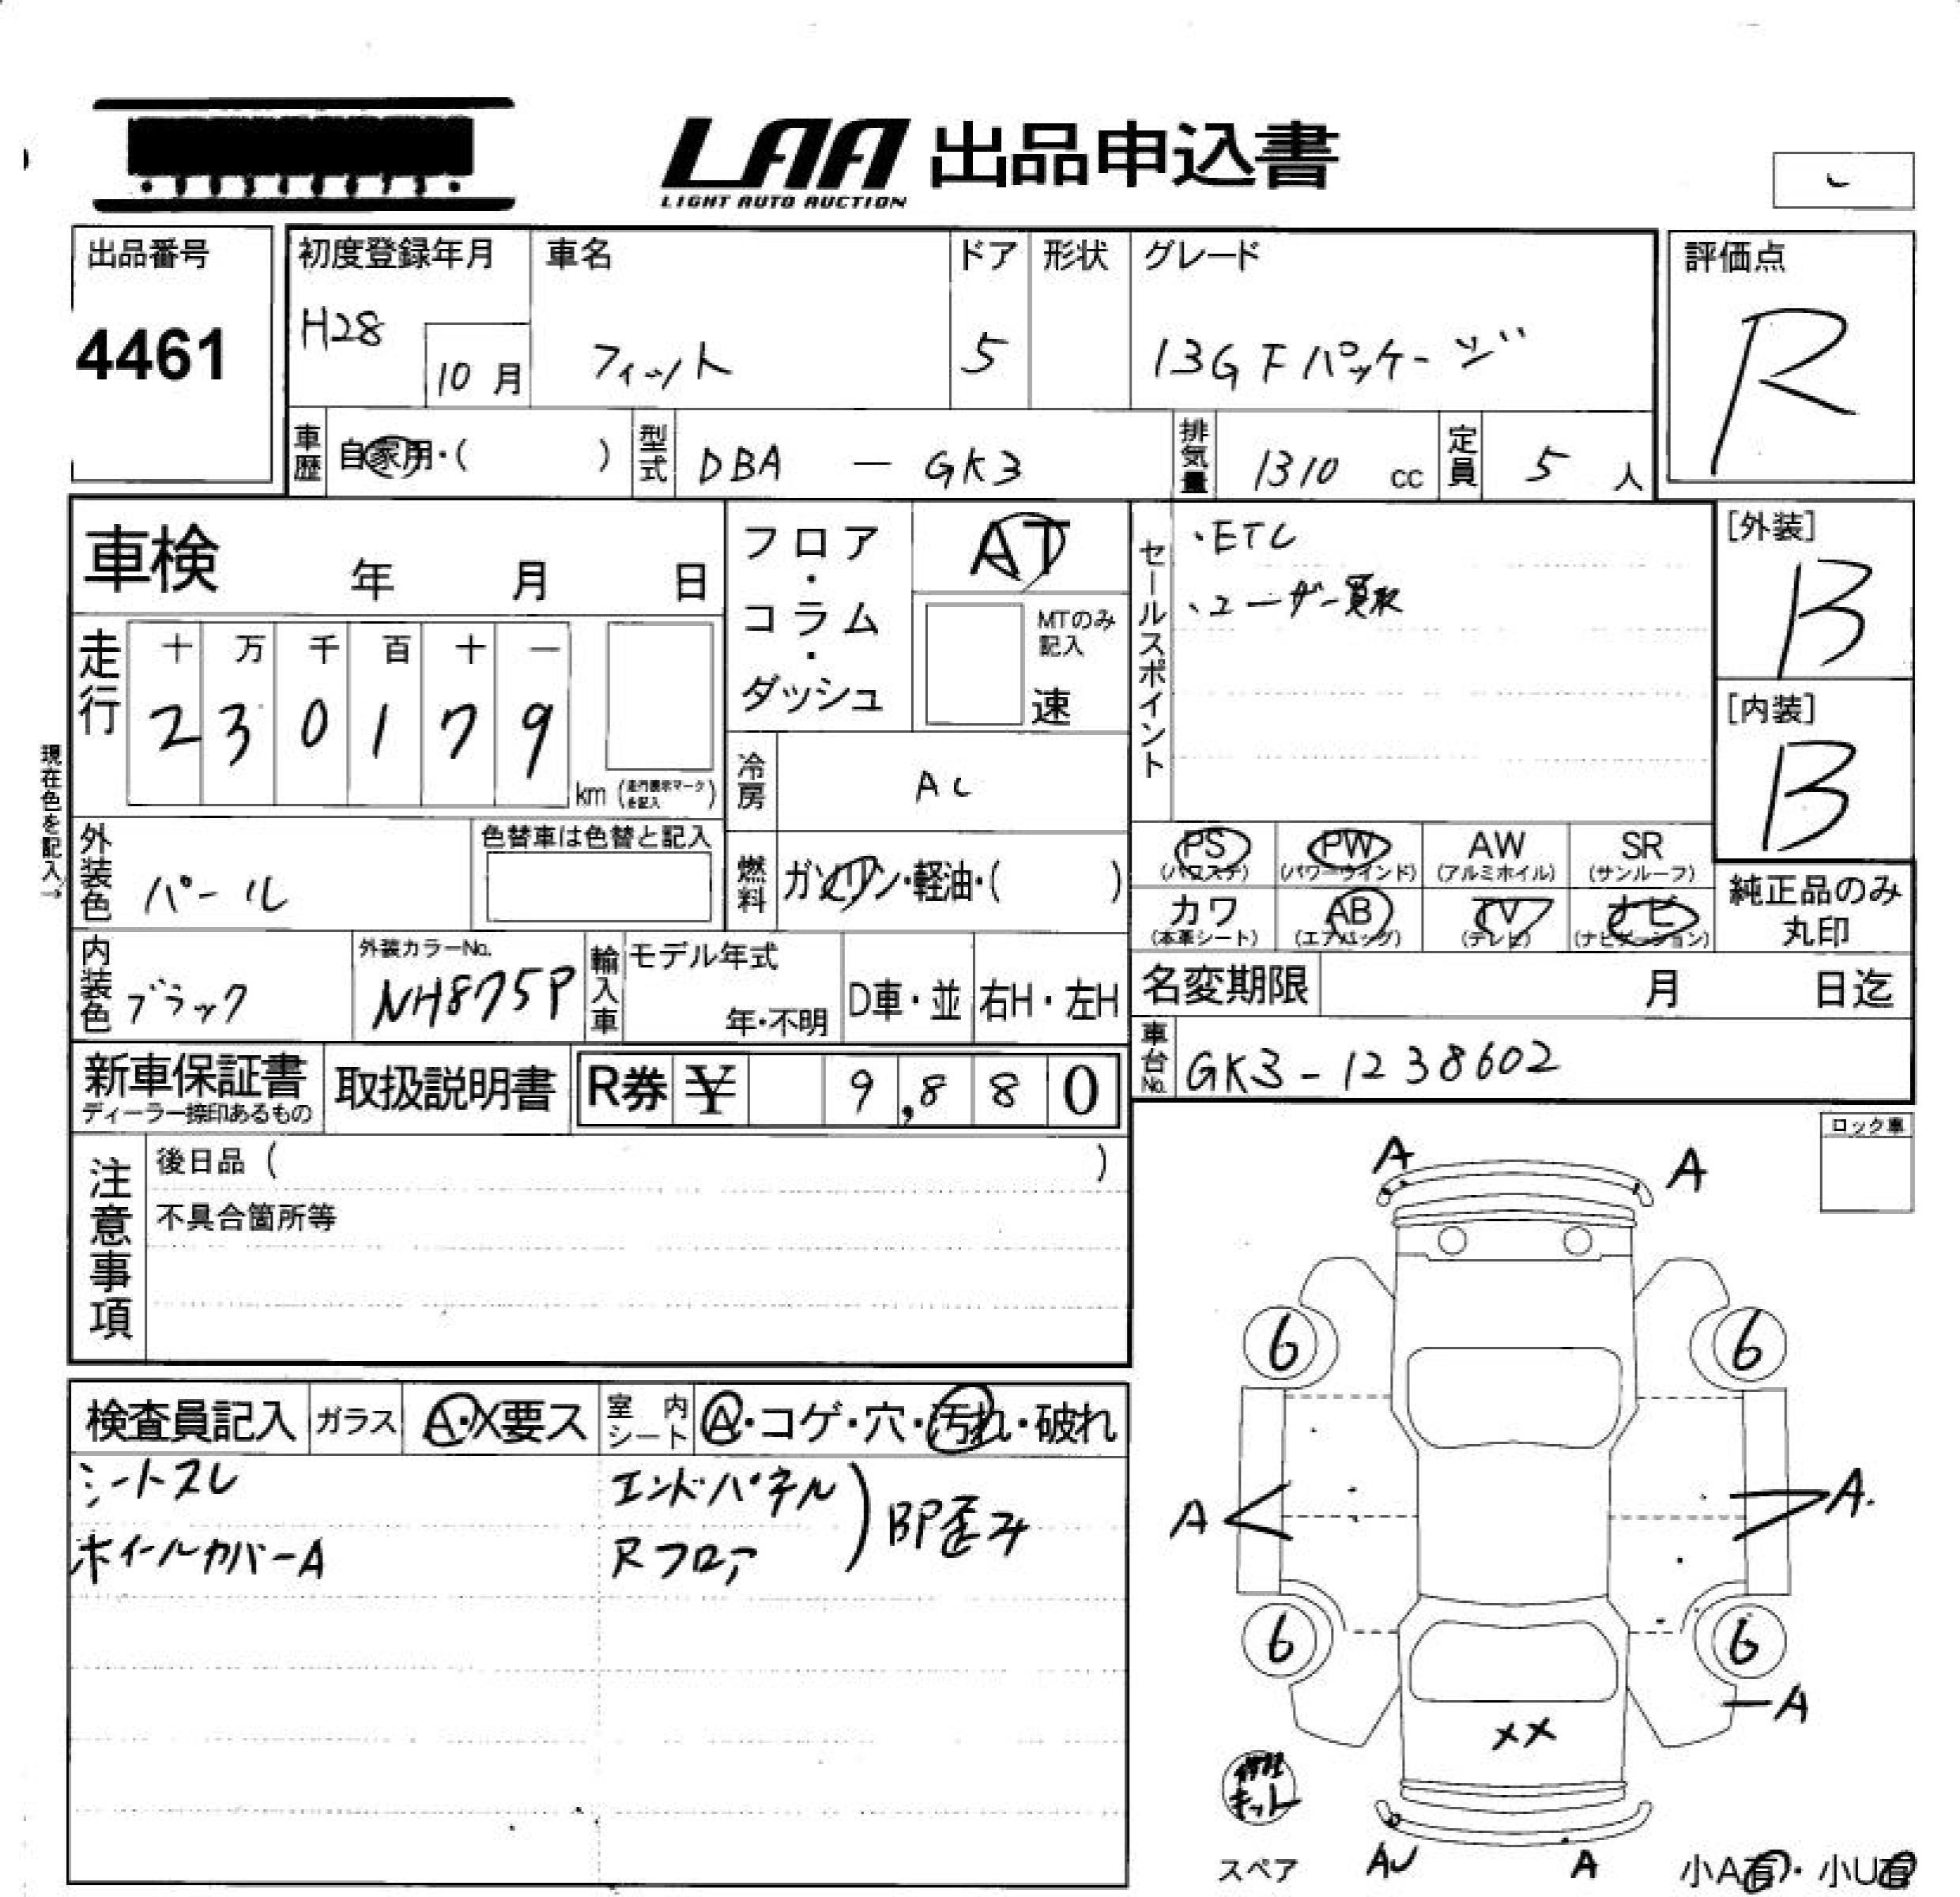 LAA 出品申込書
LIGHT AUTO AUCTION
出品番号
4461
初度登録年月
H28
10 月
車名
フィット
ドア
5
形状
グレード
13G Fパッケージ
評価点
R
車歴
自家用・( )
型式
DBA — GK3
排気量
1310 cc
定員
5 人
車検 年 月 日
フロア・コラム・ダッシュ
AT
MTのみ記入
速
セールスポイント
・ETC
・ユーザー買取
[外装]
B
[内装]
B
走行
十 万 千 百 十 一
2 3 0 1 7 9
km (走行表示マークを記入)
現在色を記入→
冷房
AC
外装色
パール
色替車は色替と記入
燃料
ガソリン・軽油・( )
PS
(パワステ)
PW
(パワーウインド)
AW
(アルミホイル)
SR
(サンルーフ)
カワ
(本革シート)
AB
(エアバッグ)
TV
(テレビ)
ナビ
(ナビゲーション)
純正品のみ
丸印
内装色
ブラック
外装カラーNo.
NH875P
輸入車
モデル年式
年・不明
D車・並
右H・左H
名変期限 月 日迄
車台No.
GK3-1238602
新車保証書
ディーラー捺印あるもの
取扱説明書
R券 ¥ 9,880
注意事項
後日品 ( )
不具合箇所等
ロック車
検査員記入
ガラス
A・X要ス
室内シート
A・コゲ・穴・汚れ・破れ
シートスレ
ホイールカバーA
エンドパネル
Rフロア
) BP歪み
A
A
6
6
A
A.
6
6
A
XX
修理
キット
スペア
AU
A
小A有・小U有